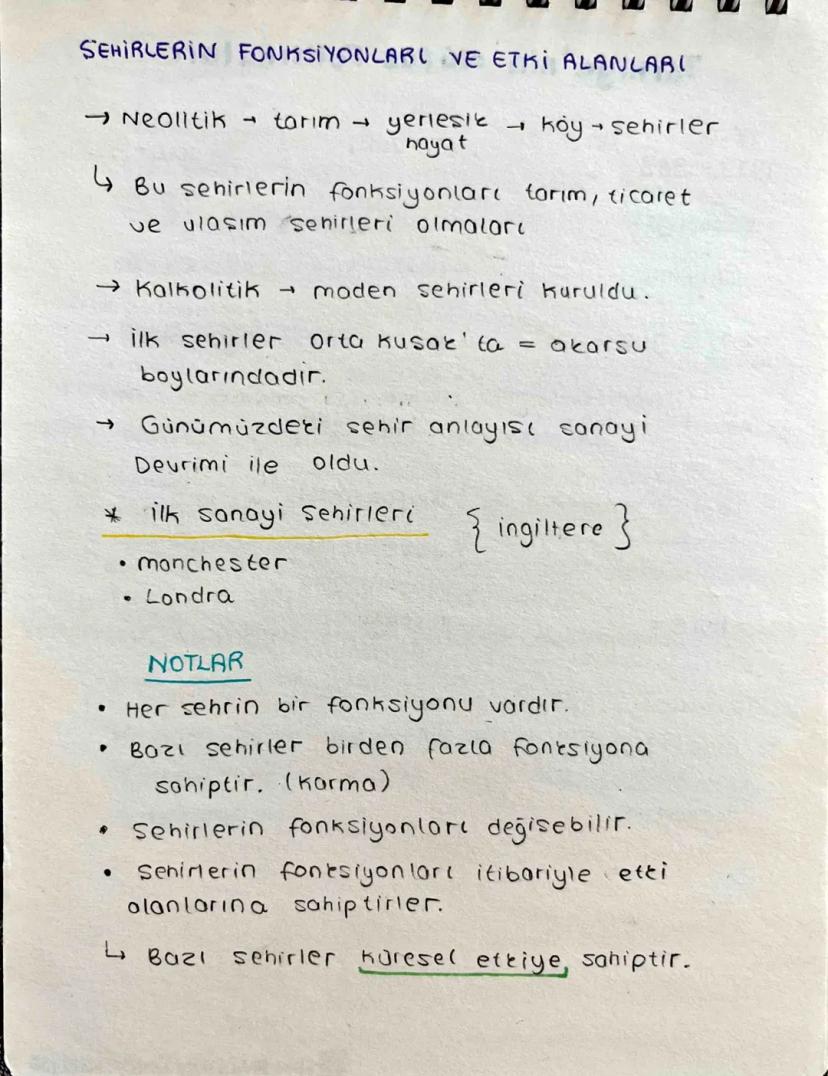 ŞEHİRLERİN FONKSİYONLARI VE ETKİ ALANLARI
→ Neolitik → tarım → yerleşik → köy → şehirler
hayat
↳ Bu şehirlerin fonksiyonları tarım, ticaret
ve ulaşım şehirleri olmaları
→ Kalkolitik → maden şehirleri kuruldu.
→ ilk şehirler orta kuşak'ta = akarsu
boylarındadır.
→ Günümüzdeki şehir anlayışı sanayi
Devrimi ile oldu.
* ilk sanayi şehirleri { ingiltere }
• manchester
• Londra
NOTLAR
• Her şehrin bir fonksiyonu vardır.
• Bazı şehirler birden fazla fonksiyona
sahiptir. (Karma)
• Şehirlerin fonksiyonları değişebilir.
• Şehirlerin fonksiyonları itibariyle etki
alanlarına sahiptirler.
↳ Bazı şehirler küresel etkiye sahiptir.